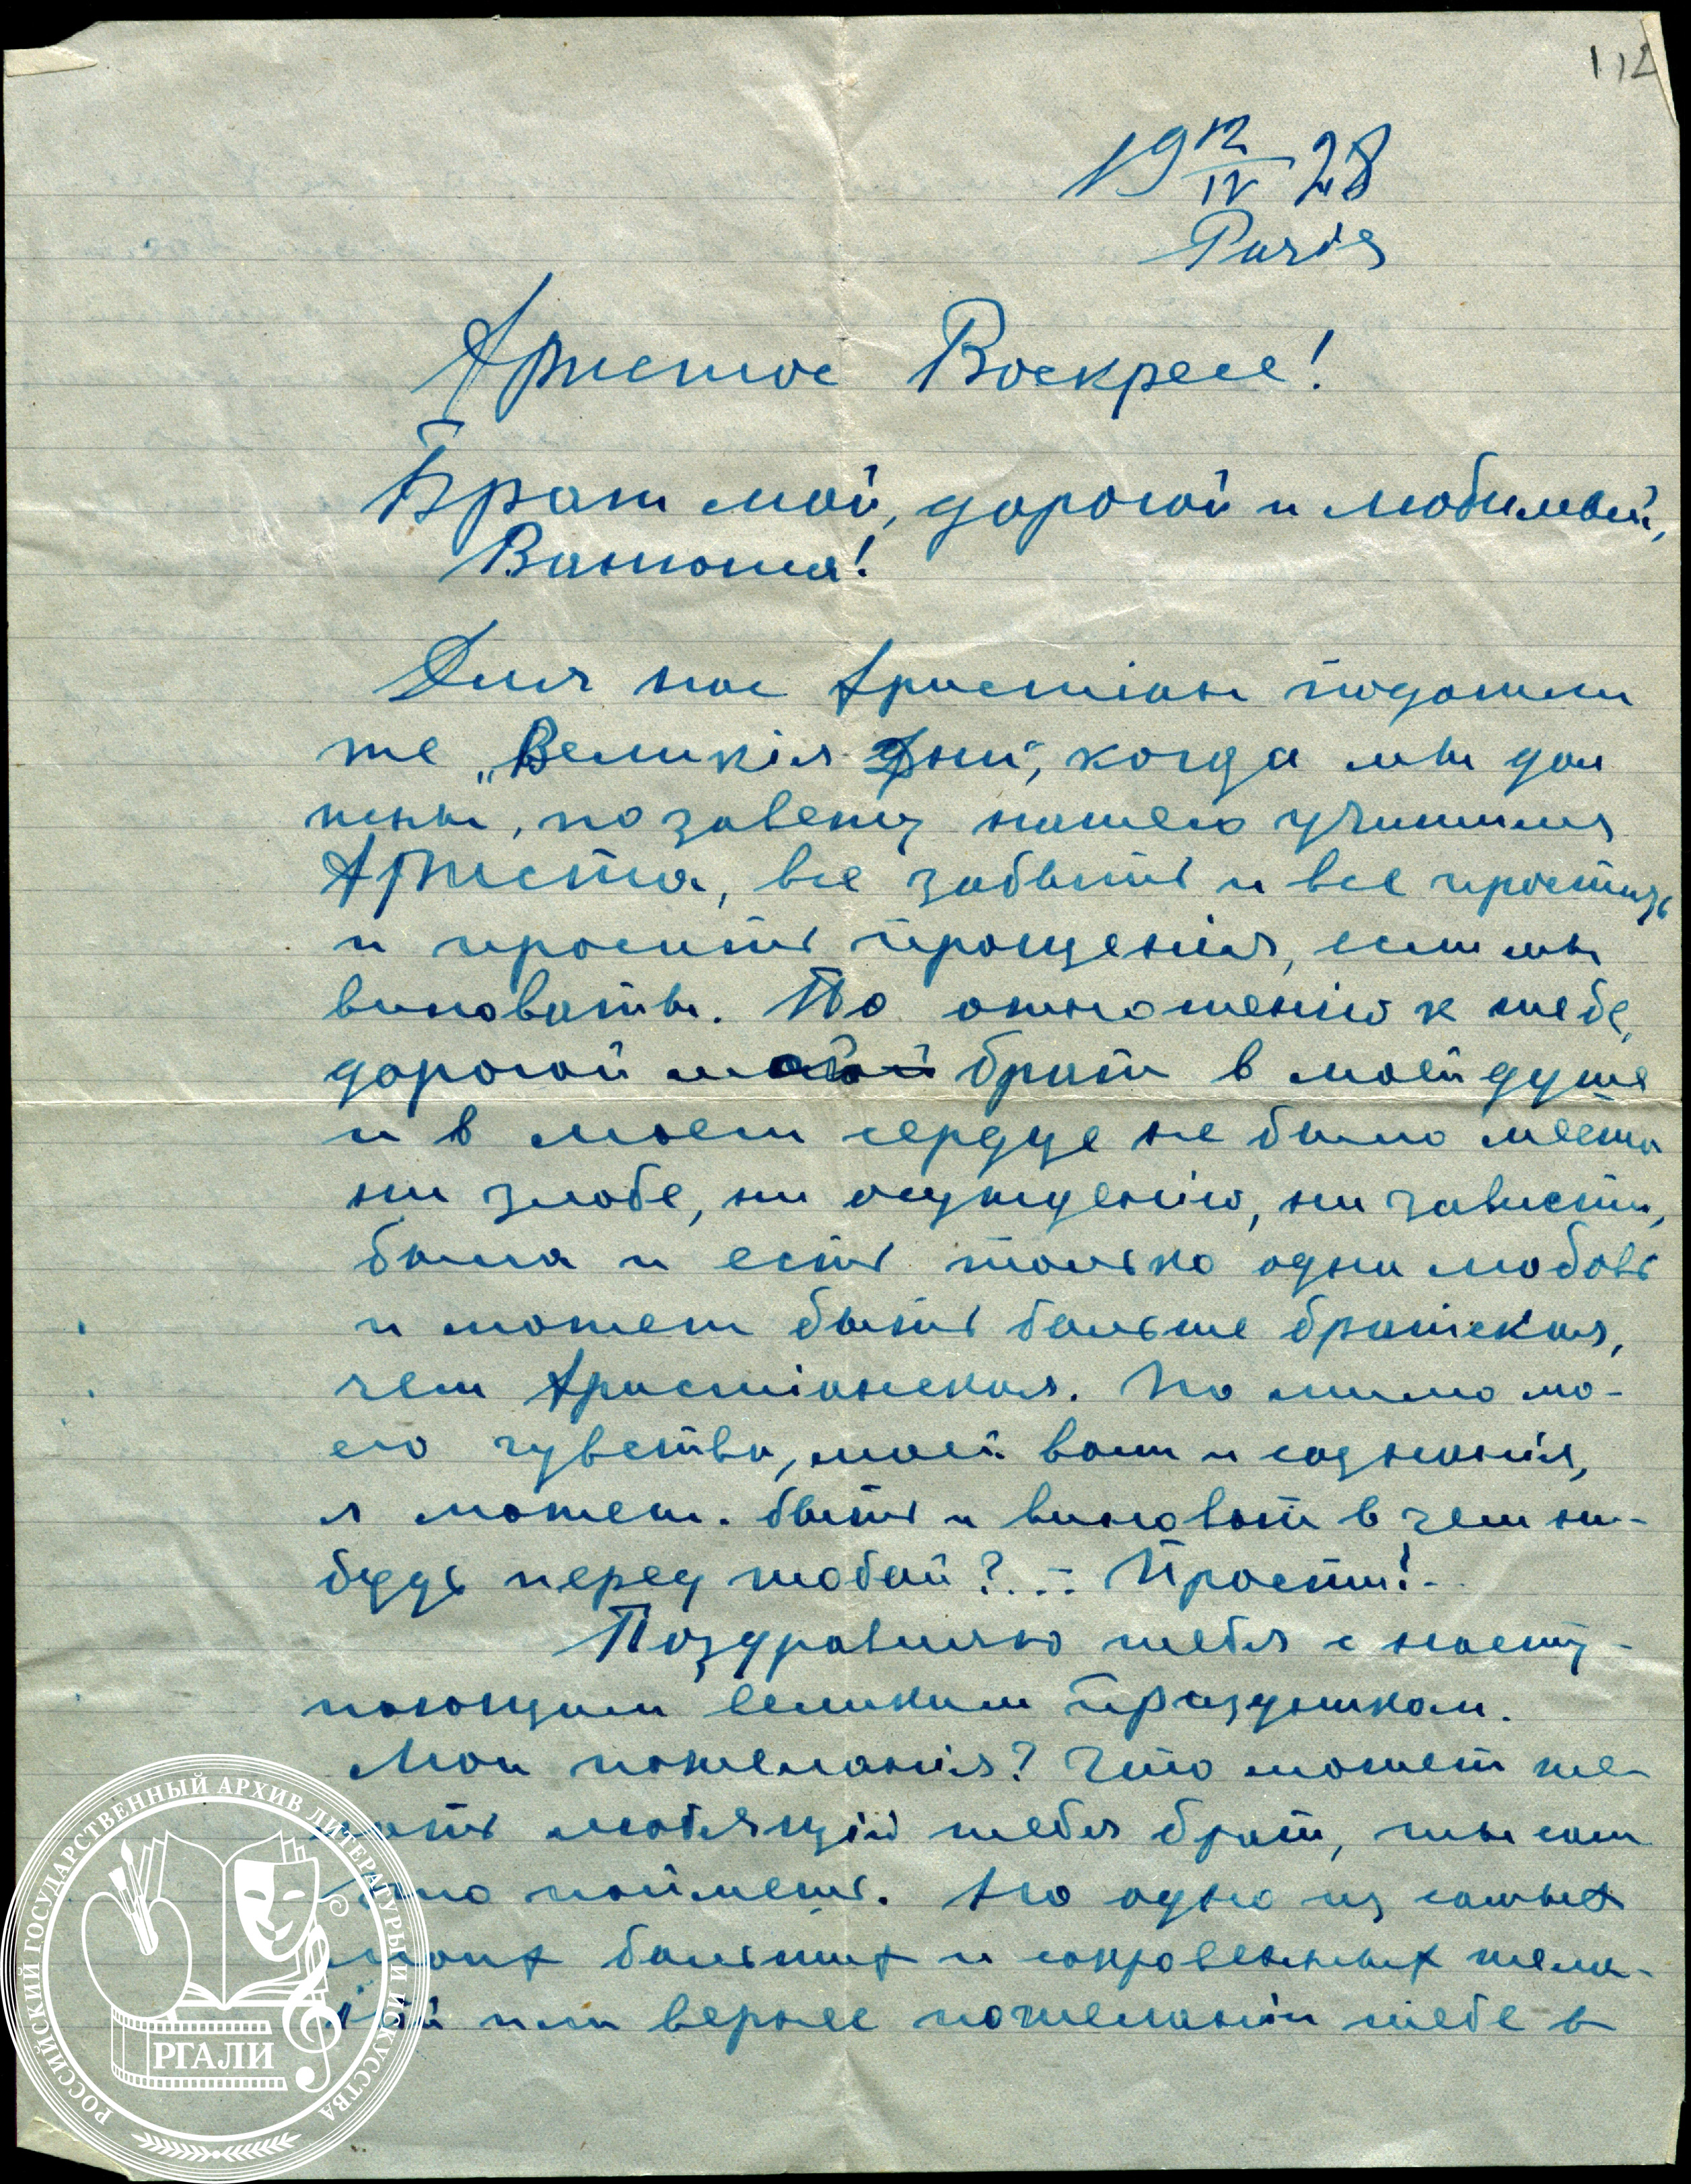 112
19 12/IV 28
Paris
Христос Воскресе!
Брат мой, дорогой и любимый,
Ванюша!
Для нас христиан подошли
те „Великія Дни“, когда мы дол
жны, по завету нашего учителя
Христа, все забыть и все простить
и просить прощенія, если мы
виноваты. По отношенію к тебе,
дорогой мой брат в моей душе
и в моем сердце не было места
ни злобе, ни осужденію, ни зависти,
была и есть только одна любовь
и может быть больше братская,
чем христіанская. Но мимо мо-
его чувства, моей воли и сознанія,
я может. быть и виноват в чем ни-
будь перед тобой?... Прости!..
Поздравляю тебя с насту-
пающим великим праздником.
Мои пожеланія? Что может же-
лать любящій тебя брат, ты сам
это поймешь. Но одно из самых
моих больших и сокровенных жела-
ній или вернее пожеланій тебе в
РОССИЙСКИЙ ГОСУДАРСТВЕННЫЙ АРХИВ ЛИТЕРАТУРЫ И ИСКУССТВА
РГАЛИ